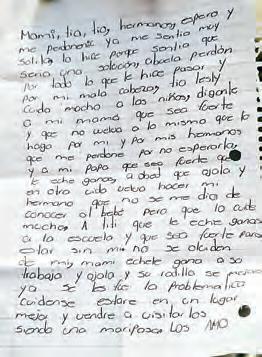 Mami, tia, tio, hermanos, espero y
me perdonen ya me sentia muy
solito, lo hice porque sentia que
seria una solución, abuela perdón
por todo lo que le hice pasar y
por mi mala cabeza, tio lesly
cuida mucho a los niños, diganle
a mi mama que sea fuerte
y que no vuelva a lo mismo que lo
haga por mi y por mis hermanos
que me perdone por no esperarla,
y a mi papa que sea fuerte que
le eche ganas, a abad que ojala y
en otra vida vuelva hacer mi
hermano que no se me dio de
conocer al bebé pero que lo cuide
mucho, A titi que le eche ganas
a la escuela y que sea fuerte para
estar sin mi, no se olviden
de mi, mami echele gana a su
trabajo y ojala y su rodilla se mejore
ya se les fue la problematica
cuidense estare en un lugar
mejor y vendre a visitarlos
siendo una mariposa LOS AMO